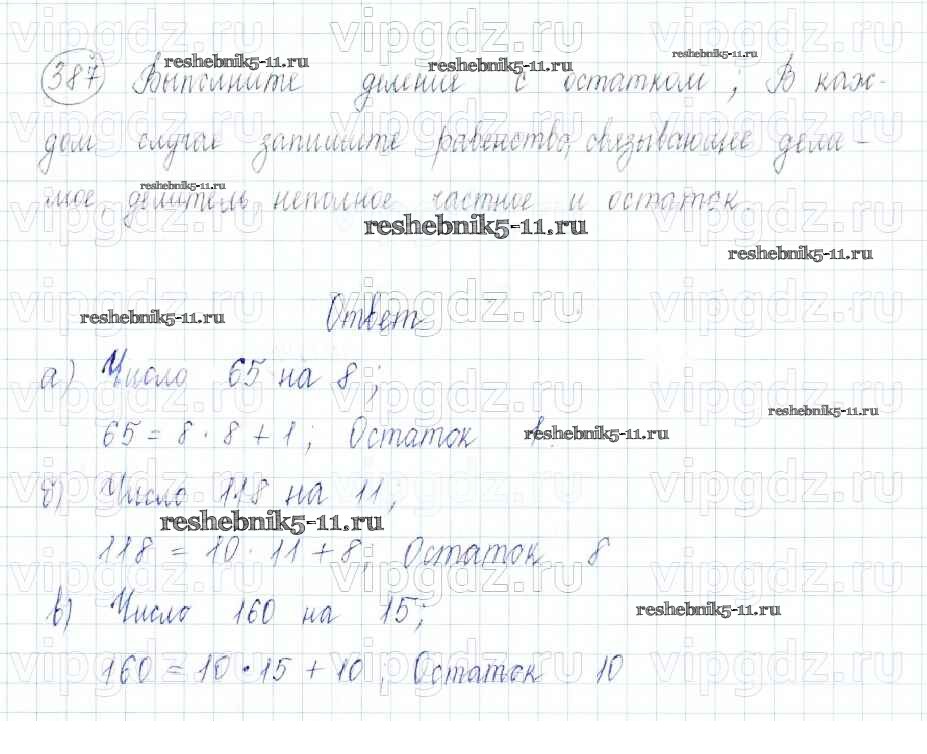 387 Выполните деление с остатком; В каж-
дом случае запишите равенство, связывающее дели-
мое, делитель, неполное частное и остаток.
Ответ
а) Число 65 на 8;
65 = 8 · 8 + 1; Остаток 1.
б) Число 118 на 11;
118 = 10 · 11 + 8; Остаток 8
в) Число 160 на 15;
160 = 10 · 15 + 10; Остаток 10
vipgdz.ru
reshebnik5-11.ru